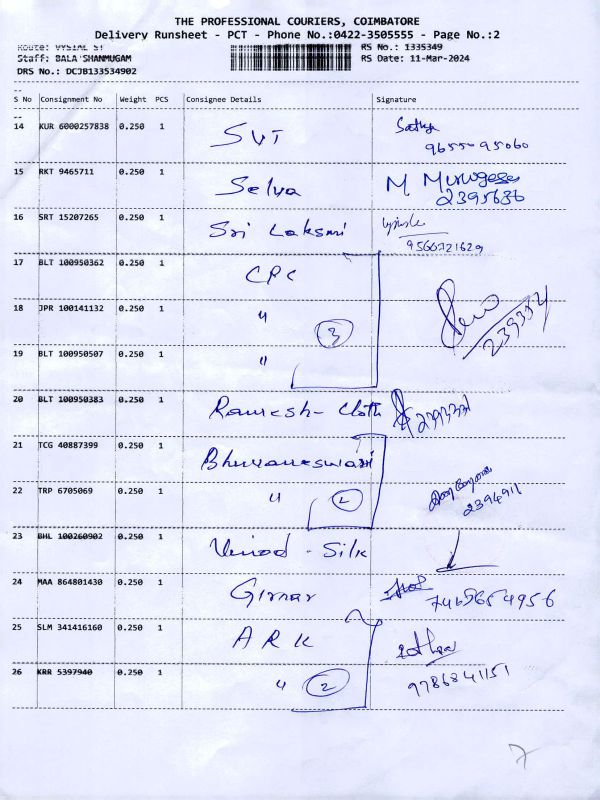 THE PROFESSIONAL COURIERS, COIMBATORE
Delivery Runsheet - PCT - Phone No.:0422-3505555 - Page No.:2
Route: VYSIAL ST RS No.: 1335349
Staff: BALA SHANMUGAM RS Date: 11-Mar-2024
DRS No.: DCJB133534902
S No Consignment No Weight PCS Consignee Details Signature
14 KUR 6000257838 0.250 1 SVT Sathya
9655095060
15 RKT 9465711 0.250 1 Selva M Murugesa
2395636
16 SRT 15207265 0.250 1 Sri Laksmi
9566721629
17 BLT 100950362 0.250 1 CPC
18 JPR 100141132 0.250 1 " 3 239354
19 BLT 100950507 0.250 1 "
20 BLT 100950383 0.250 1 Ramesh- Cloth
21 TCG 40887399 0.250 1 Bhuvaneswari
22 TRP 6705069 0.250 1 " 2 2394911
23 BHL 100260902 0.250 1 Vinod - Silk
24 MAA 864801430 0.250 1 Girnar 7465654956
25 SLM 341416160 0.250 1 ARK
26 KRR 5397940 0.250 1 " 2 9786841151
7